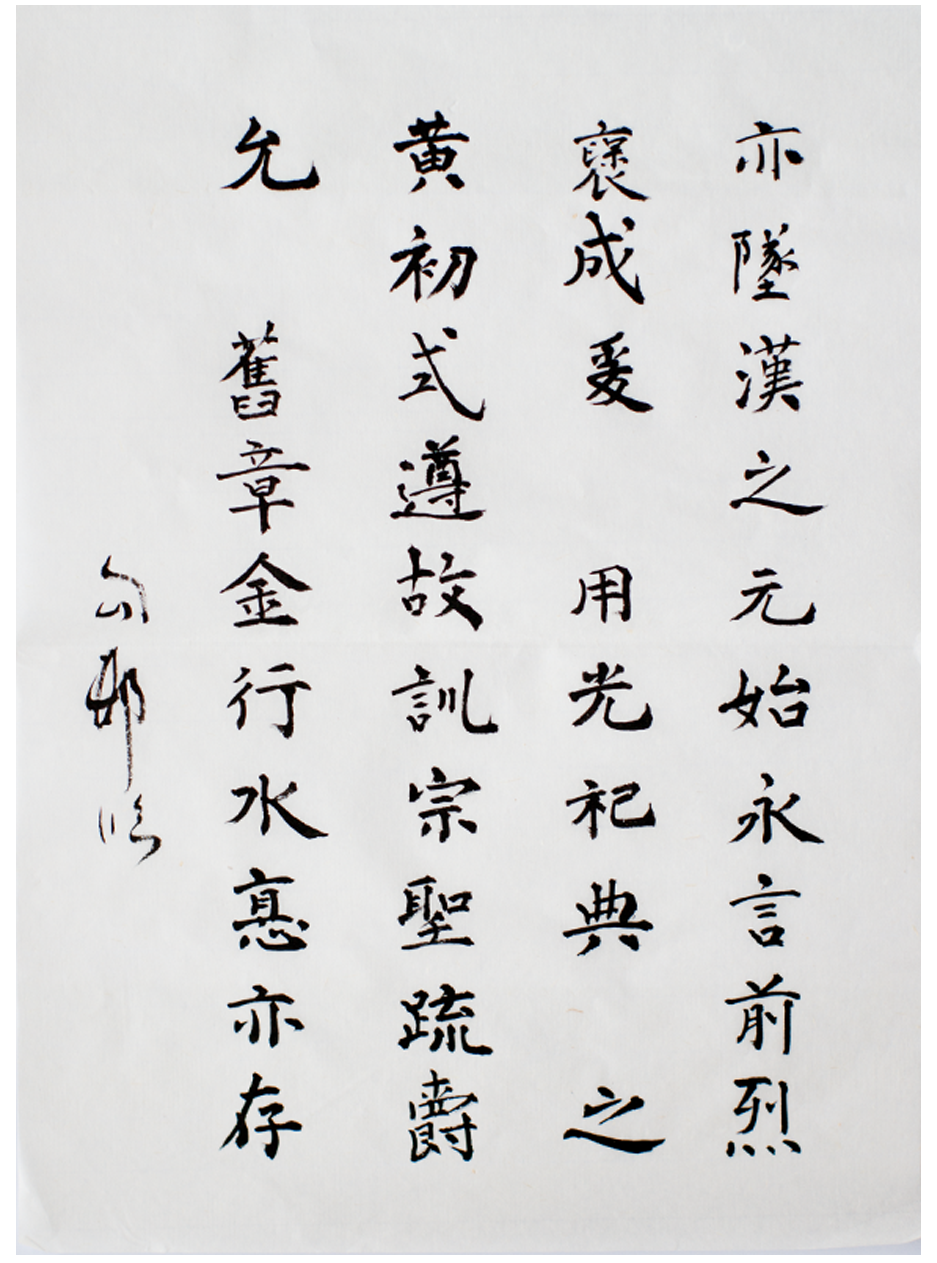 亦墜漢之元始永言前烈
褒成爰 用光祀典 之
黃初式遵故訓宗聖疏爵
允 舊章金行水悳亦存
臨